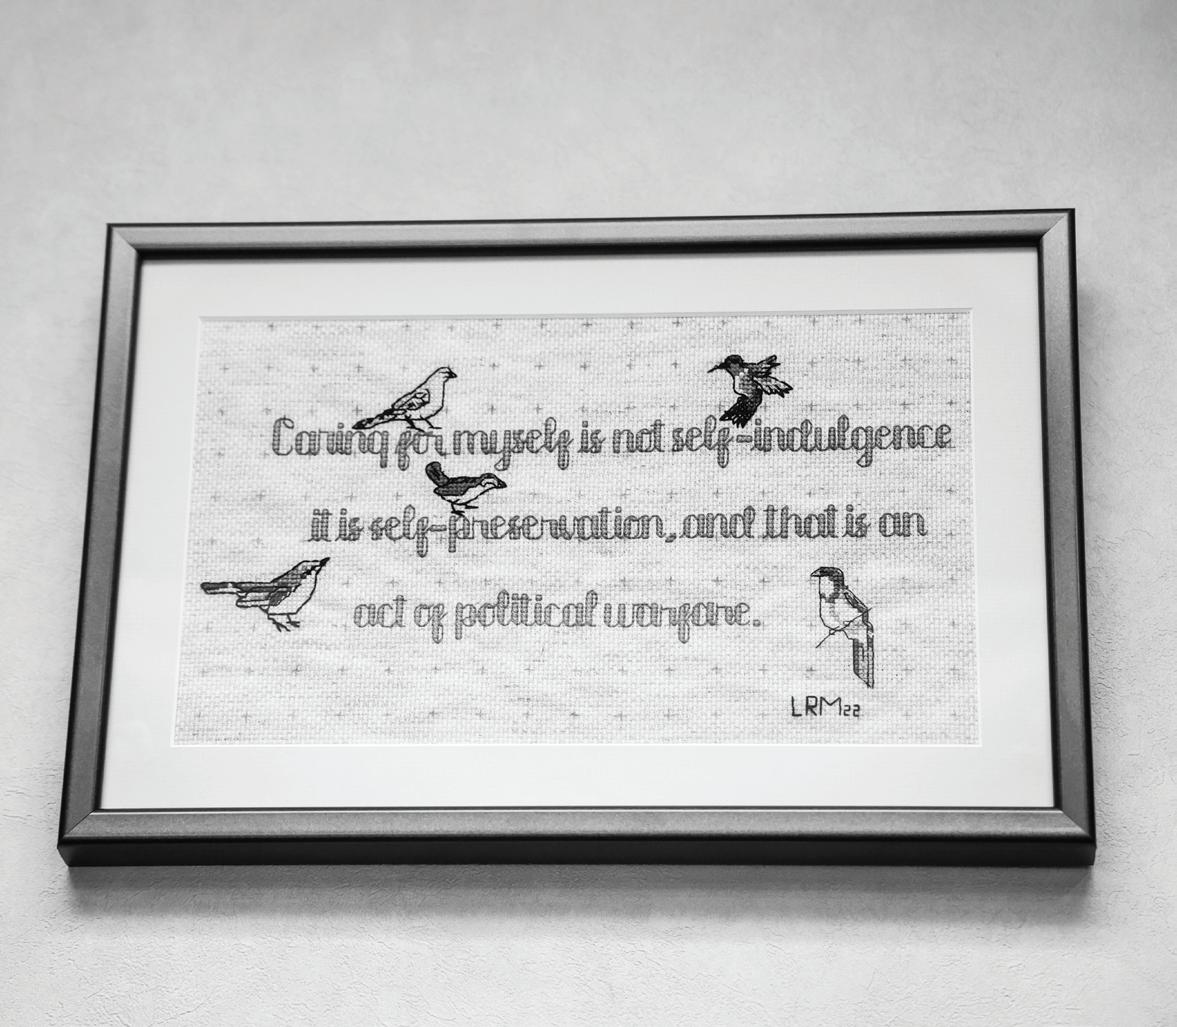 Caring for myself is not self-indulgence
it is self-preservation, and that is an
act of political warfare.
LRM22